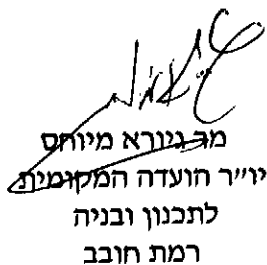 מר גיורא מיוחס
יו״ר הועדה המקומית
לתכנון ובניה
רמת חובב